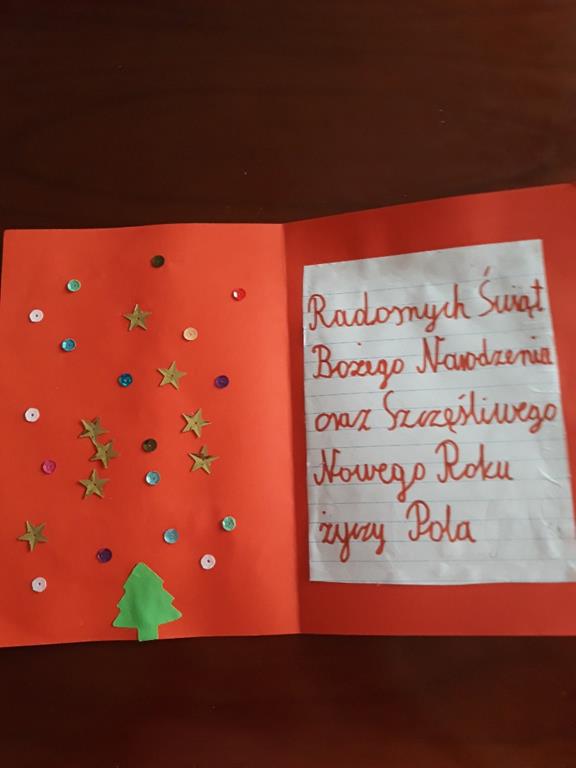 Radosnych Świąt
Bożego Narodzenia
oraz Szczęśliwego
Nowego Roku
życzy Pola